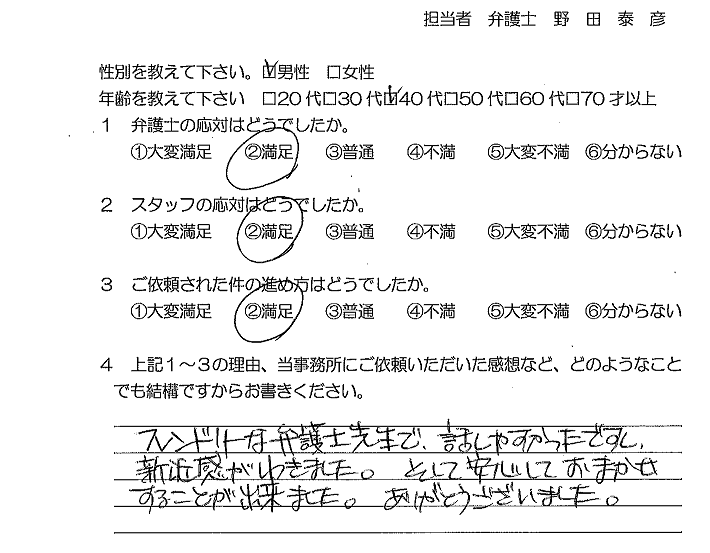 担当者 弁護士 野 田 泰 彦
性別を教えて下さい。☑男性 □女性
年齢を教えて下さい □20代□30代☑40代□50代□60代□70才以上
1 弁護士の応対はどうでしたか。
①大変満足 ②満足 ③普通 ④不満 ⑤大変不満 ⑥分からない
2 スタッフの応対はどうでしたか。
①大変満足 ②満足 ③普通 ④不満 ⑤大変不満 ⑥分からない
3 ご依頼された件の進め方はどうでしたか。
①大変満足 ②満足 ③普通 ④不満 ⑤大変不満 ⑥分からない
4 上記1～3の理由、当事務所にご依頼いただいた感想など、どのようなこと
でも結構ですからお書きください。
フレンドリーな弁護士先生で、話しやすかったですし、
新近感がわきました。そして安心しておまかせ
することが出来ました。ありがとうございました。